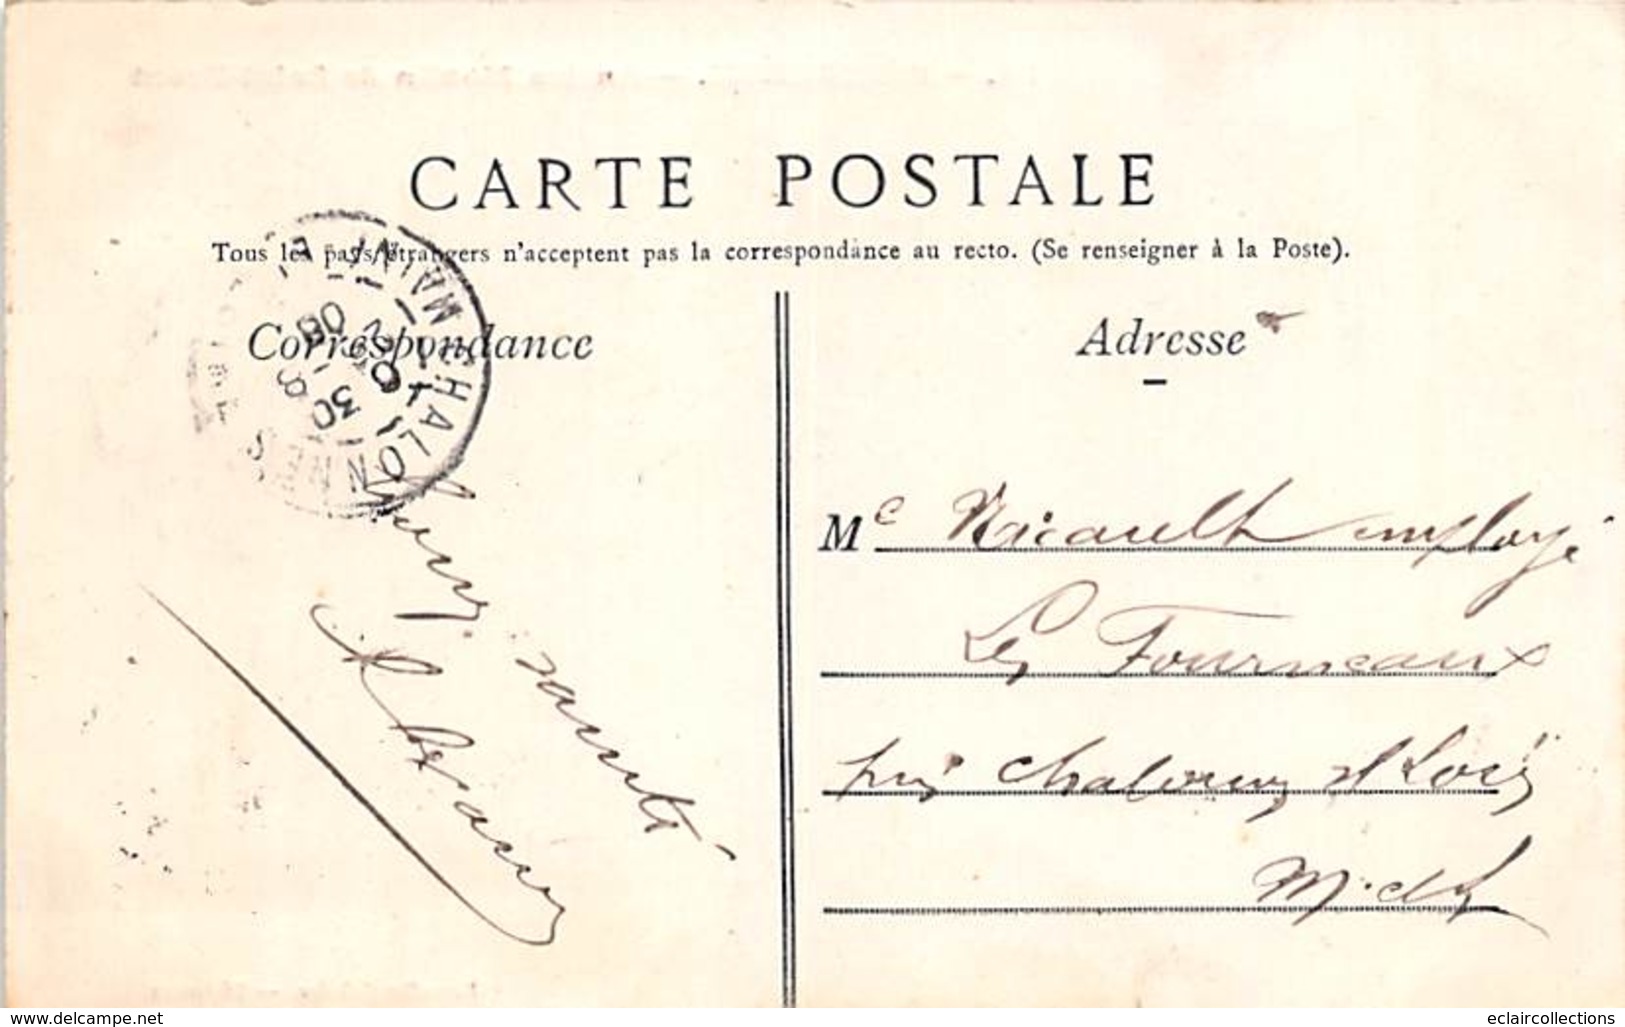 CARTE POSTALE
Tous les pays étrangers n'acceptent pas la correspondance au recto. (Se renseigner à la Poste).
Correspondance
Adresse
CHALONNES
MAINE
8 30
08
Bonne santé
Me employé
Les Fourneaux
près Chalonnes s/ Loire
M. et L.
www.delcampe.net
eclaircollections